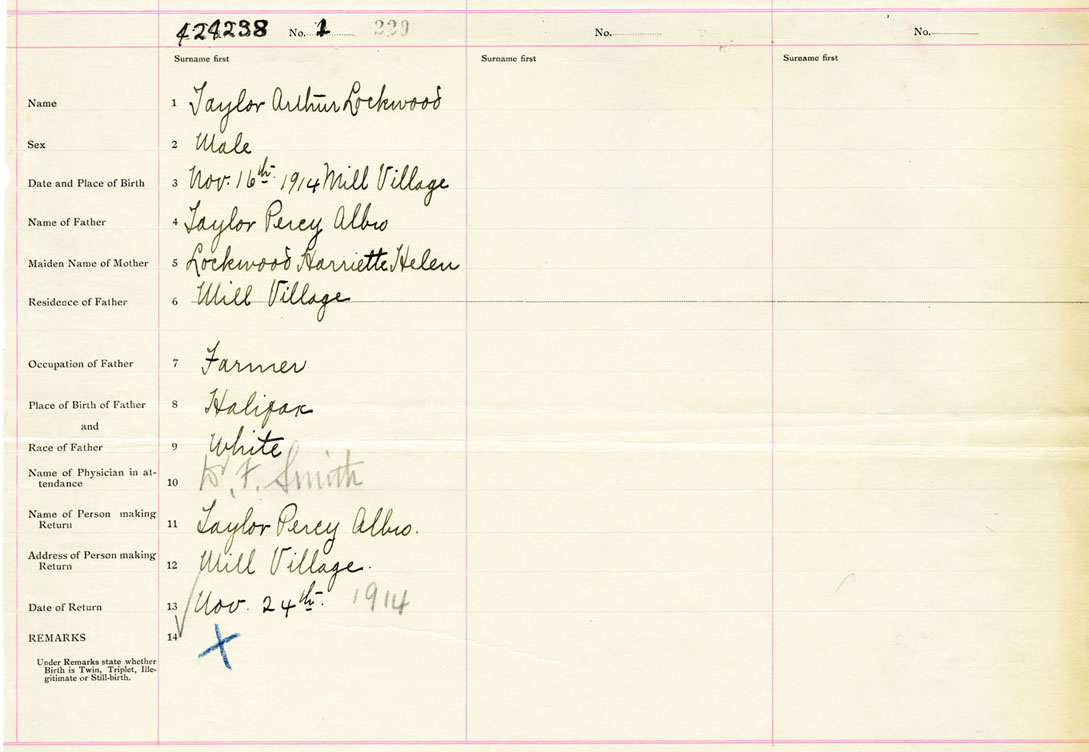 424238 No. 1 229 No. No.
Surname first Surname first Surname first
Name 1 Taylor Arthur Lockwood
Sex 2 Male
Date and Place of Birth 3 Nov. 16th 1914 Mill Village
Name of Father 4 Taylor Percy Albro
Maiden Name of Mother 5 Lockwood Harriette Helen
Residence of Father 6 Mill Village
Occupation of Father 7 Farmer
Place of Birth of Father 8 Halifax
and
Race of Father 9 White
Name of Physician in at-
tendance 10 F. Smith
Name of Person making
Return 11 Taylor Percy Albro.
Address of Person making
Return 12 Mill Village.
Date of Return 13 Nov. 24th. 1914
REMARKS 14
Under Remarks state whether
Birth is Twin, Triplet, Ille-
gitimate or Still-birth.